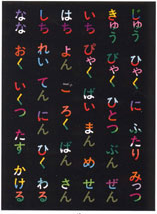 じゅう ひゃく に ふたり みっつ
きゅう びゃく ひとつ ぶん ぜん
いち ぴゃく ばい まん め せん
はち よん ご ろく ばん さん
しち れい てん にん ひく わる
なな おく いくつ たす かける